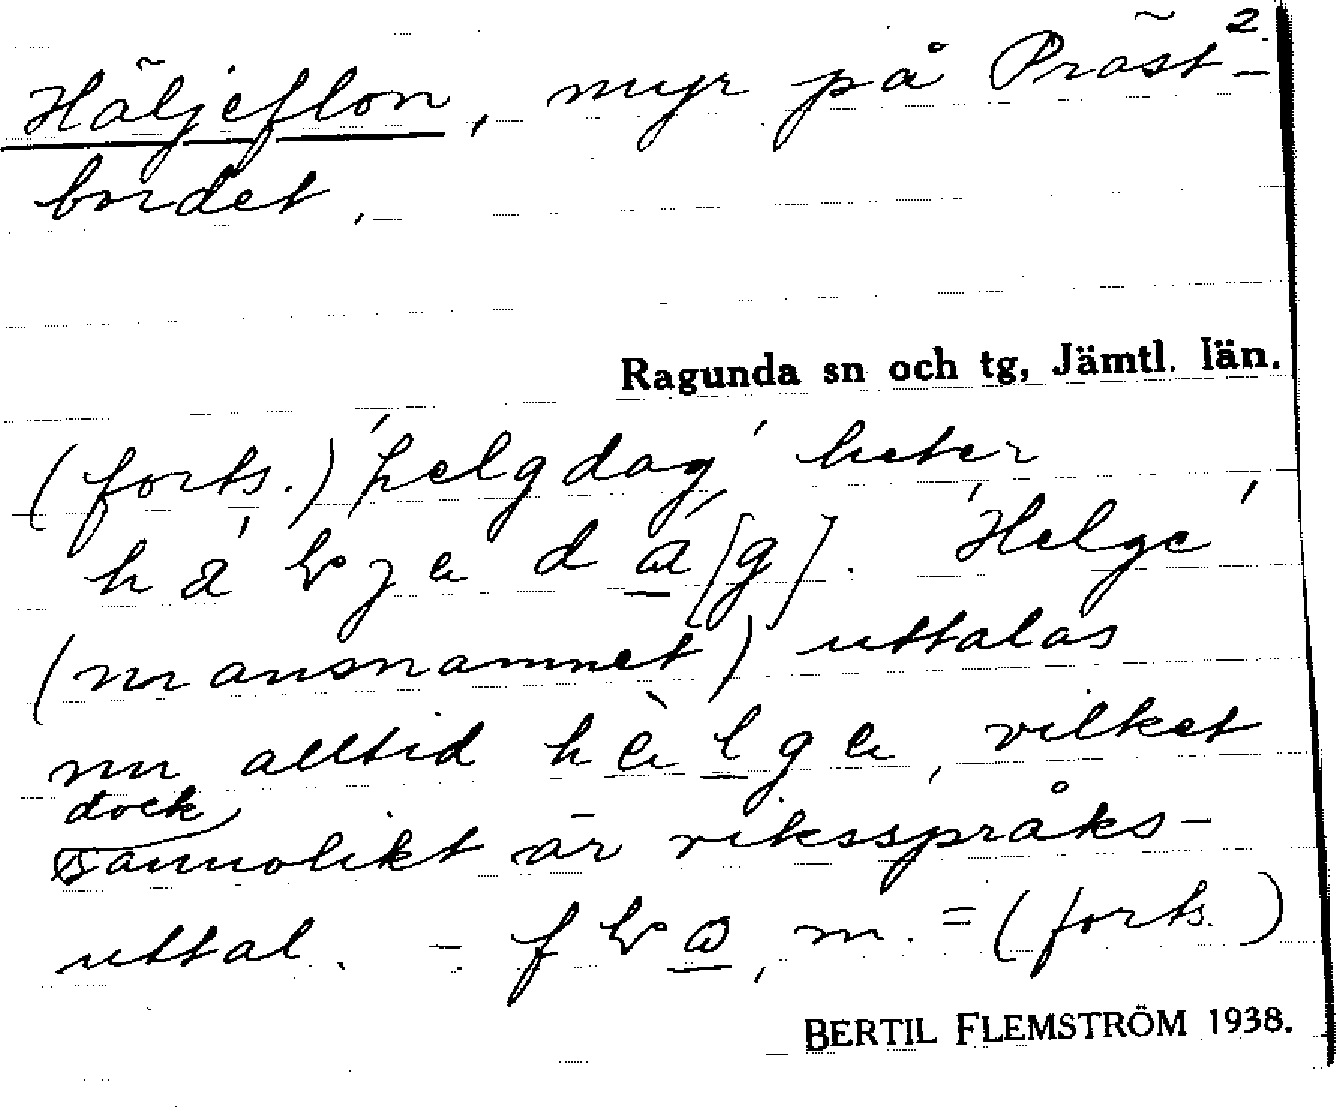 2.
Häljeflon, myr på Präst-
bordet.
Ragunda sn och tg, Jämtl. län.
(forts.) 'helgdag' heter
d [g]. 'Helge'
(mansnamnet) uttalas
nu alltid hèlge, vilket
dock
sannolikt är riksspråks-
uttal. - m. = (forts.)
BERTIL FLEMSTRÖM 1938.